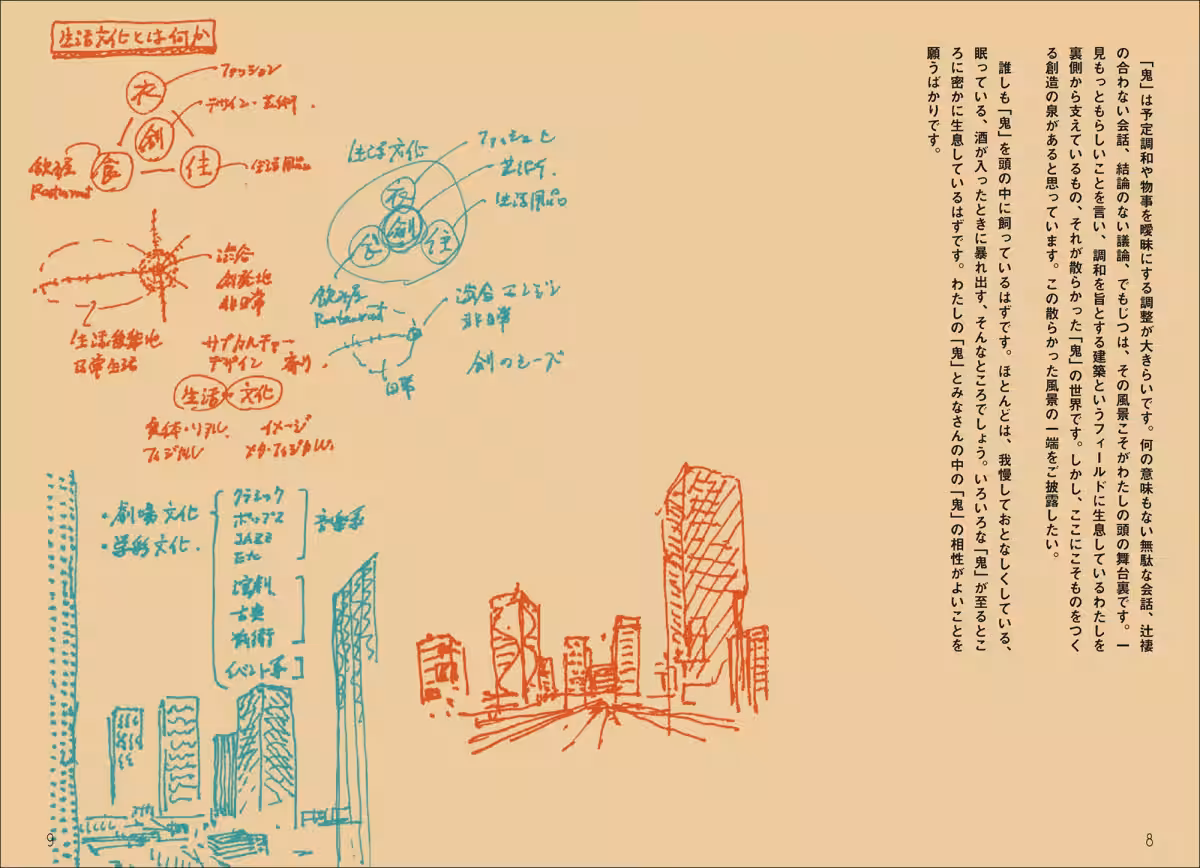 「鬼」は予定調和や物事を曖昧にする調整が大きらいです。何の意味もない無駄な会話、辻褄
の合わない会話、結論のない議論、でもじつは、その風景こそがわたしの頭の舞台裏です。一
見もっともらしいことを言い、調和を旨とする建築というフィールドに生息しているわたしを
裏側から支えているもの、それが散らかった「鬼」の世界です。しかし、ここにこそものをつく
る創造の泉があると思っています。この散らかった風景の一端をご披露したい。
誰しも「鬼」を頭の中に飼っているはずです。ほとんどは、我慢しておとなしくしている、
眠っている、酒が入ったときに暴れ出す、そんなところでしょう。いろいろな「鬼」が至るとこ
ろに密かに生息しているはずです。わたしの「鬼」とみなさんの中の「鬼」の相性がよいことを
願うばかりです。
8
生活文化とは何か
ファッション
衣
デザイン・芸術
創
食
住
生活用品
Restaurant
渋谷
創発地
非日常
日常生活
サブカルチャー
デザイン
生活
文化
実体・リアル
フィジカル
イメージ
メタ・フィジカル
生活文化
ファッション
芸術
生活用品
衣
創
食
住
Restaurant
渋谷 エンジン
非日常
日常
創のシーズ
・劇場文化
クラシック
ポップス
JAZZ
Etc
音楽系
演劇
古典
芸術
イベント系
9